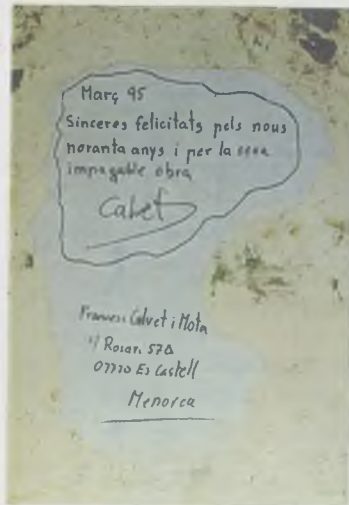 Març 95
Sinceres felicitats pels nous
noranta anys i per la seva
impagable obra
Calvet
Francesc Calvet i Mota
c/ Roser, 57A
07720 Es Castell
Menorca